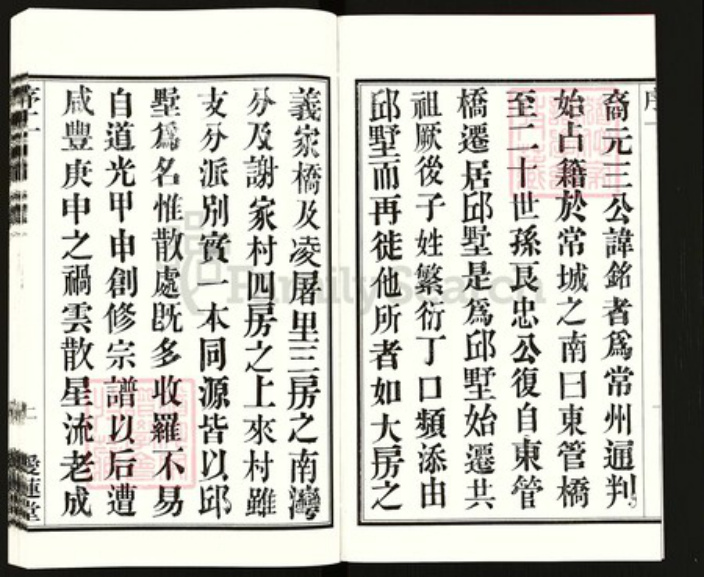 裔元三公諱銘者爲常州通判
始占籍於常城之南曰東管橋
至二十世孫良忠公復自東管
橋遷居邱墅是爲邱墅始遷共
祖厥後子姓繁衍丁口頻添由
邱墅而再徙他所者如大房之
義家橋及凌屠里三房之南灣
分及謝家村四房之上來村雖
支分派別實一本同源皆以邱
墅爲名惟散處旣多收羅不易
自道光甲申創修宗譜以后遭
咸豐庚申之禍雲散星流老成
序
二
愛蓮堂
FamilySearch